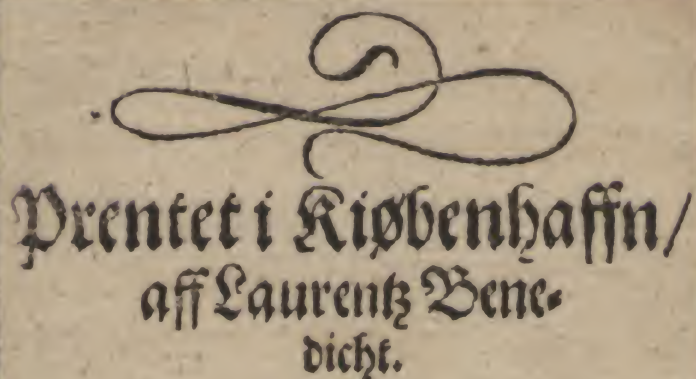 Prentet i Kiøbenhaffn/
aff Laurentz Bene⸗
dicht.